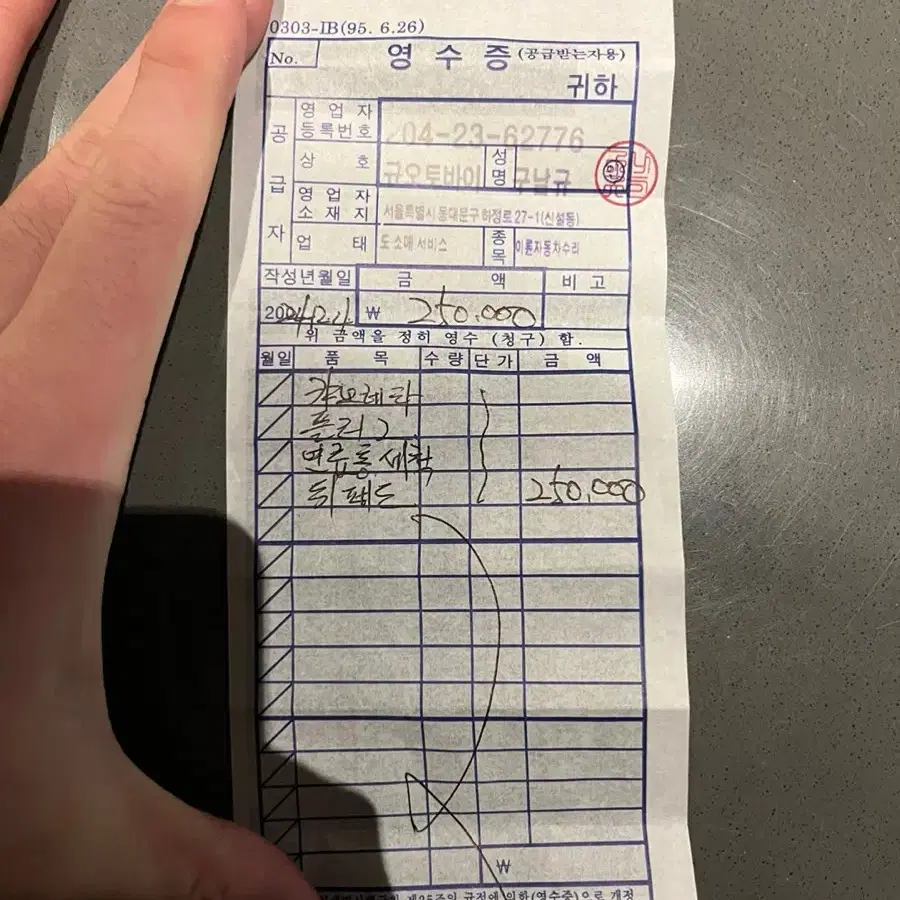 0303-IB(95. 6.26)
No. 영 수 증 (공급받는자용)
귀하
공급자
영 업 자 등록번호 204-23-62776
상 호 규오토바이 성명 구남규 ㊞
영 업 자 소 재 지 서울특별시 동대문구 하정로 27-1(신설동)
업 태 도·소매 서비스 종목 이륜자동차수리
작성년월일 금 액 비 고
₩ 250.000
위 금액을 정히 영수 (청구) 함.
월일 품 목 수 량 단 가 금 액
캬브레타
플러그
연료통 세척
뒤 패드 250.000
₩